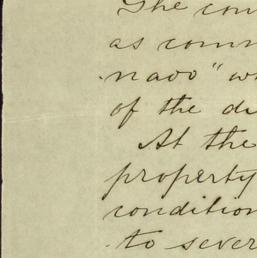 The con
as comm
nado" w
of the d
At the
property
condition
to sever